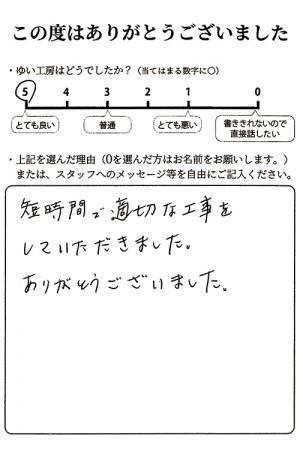 この度はありがとうございました
・ゆい工房はどうでしたか？（当てはまる数字に〇）
5 4 3 2 1 0
とても良い 普通 とても悪い 書ききれないので直接話したい
・上記を選んだ理由（0を選んだ方はお名前をお願いします。）
または、スタッフへのメッセージ等を自由にご記入ください。
短時間で適切な工事を
していただきました。
ありがとうございました。